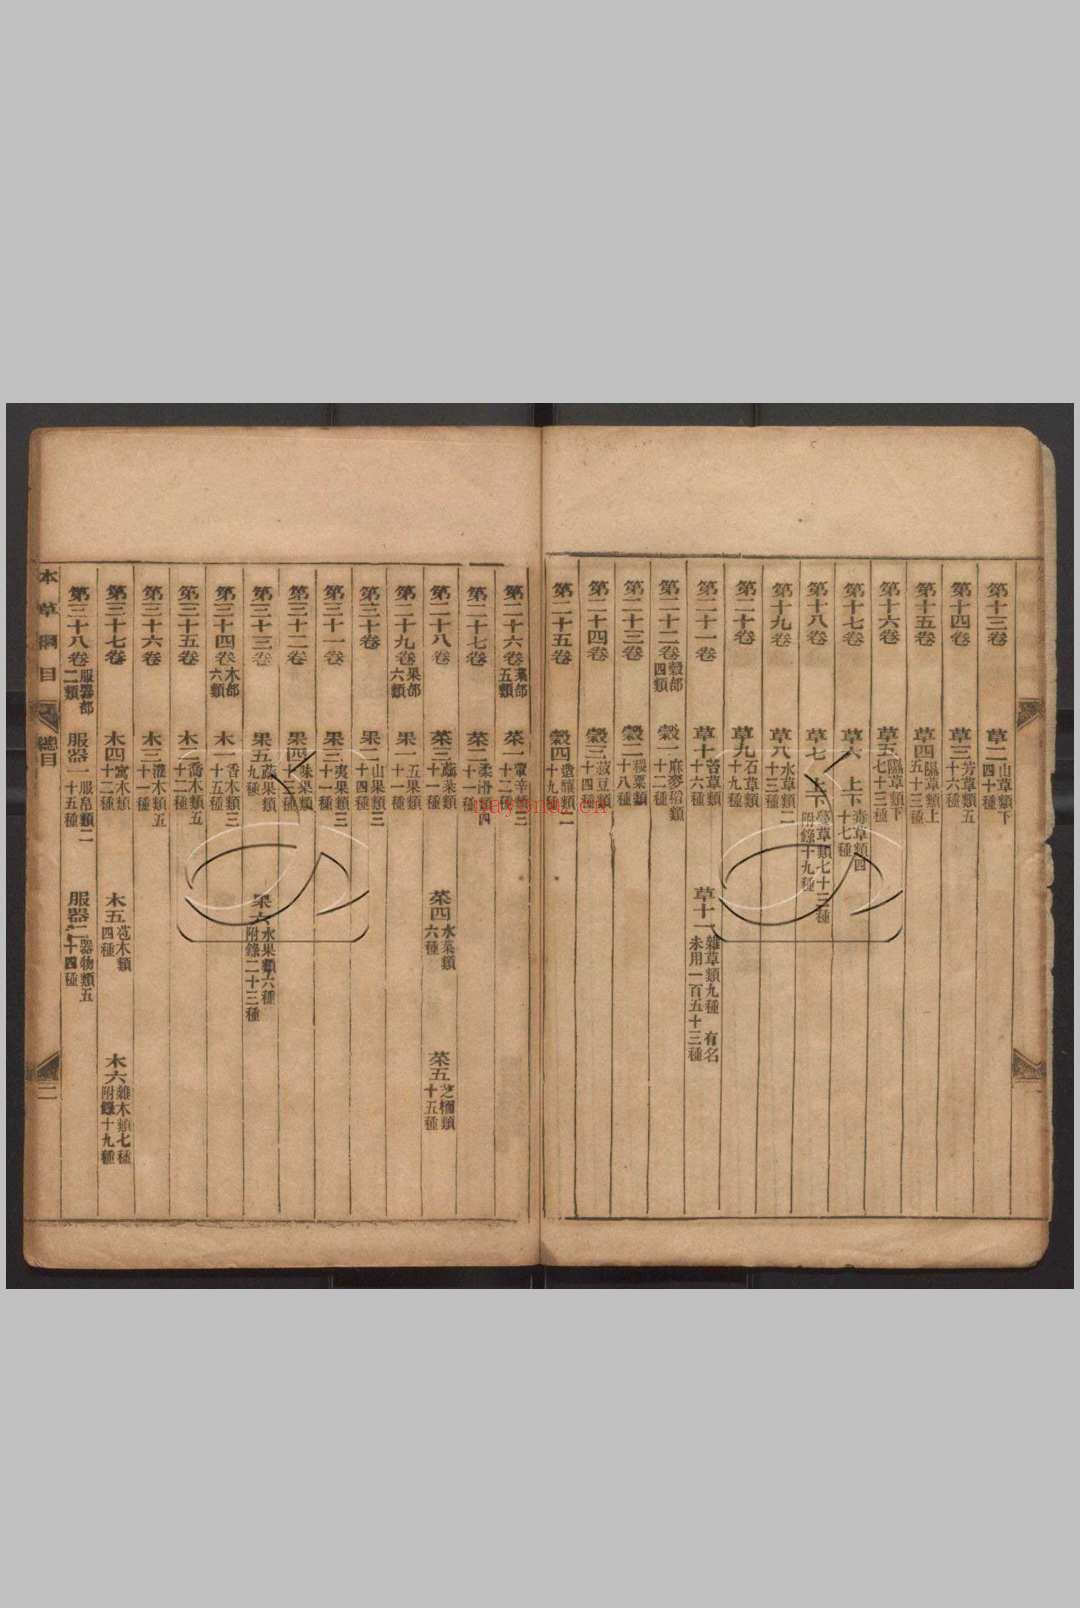 第十三卷 草二 山草類下四十種
第十四卷 草三 芳草類五十六種
第十五卷 草四 隰草類上五十三種
第十六卷 草五 隰草類下七十三種
第十七卷 草六 上下 毒草類四十七種
第十八卷 草七 上下 蔓草類七十三種附錄十九種
第十九卷 草八 水草類二十三種
第二十卷 草九 石草類十九種
第二十一卷 草十 苔草類十六種 草十一 雜草類九種 有名未用一百五十三種
第二十二卷 穀部四類 穀一 麻麥稻類十二種
第二十三卷 穀二 稷粟類十八種
第二十四卷 穀三 菽豆類十四種
第二十五卷 穀四 造釀類二十九種
第二十六卷 菜部五類 菜一 葷辛類三十二種
第二十七卷 菜二 柔滑類四十一種
第二十八卷 菜三 蓏菜類十一種 菜四 水菜類六種 菜五 芝栭類十五種
第二十九卷 果部六類 果一 五果類十一種
第三十卷 果二 山果類三十四種
第三十一卷 果三 夷果類三十一種
第三十二卷 果四 味果類十三種
第三十三卷 果五 蓏果類九種 果六 水果類六種附錄二十三種
第三十四卷 木部六類 木一 香木類三十五種
第三十五卷 木二 喬木類五十二種
第三十六卷 木三 灌木類五十一種
第三十七卷 木四 寓木類十二種 木五 苞木類四種 木六 雜木類七種附錄十九種
第三十八卷 服器部二類 服器一 服帛類二十五種 服器二 器物類五十四種
本草綱目 總目 二